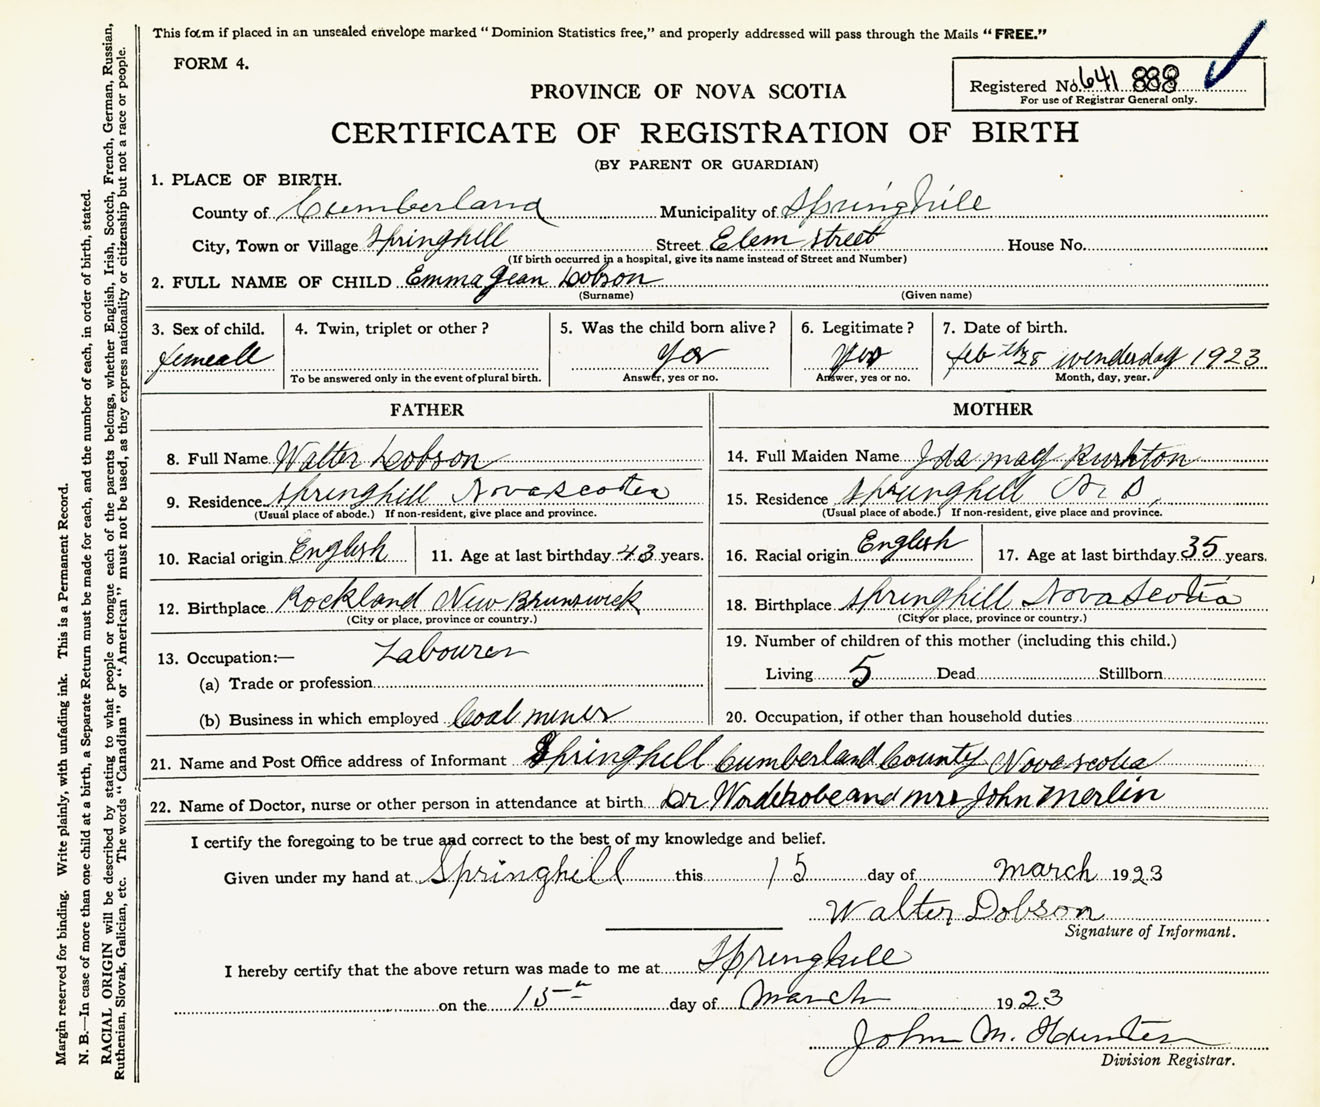 This form if placed in an unsealed envelope marked "Dominion Statistics free," and properly addressed will pass through the Mails "FREE."
FORM 4.
Registered No. 641 888
For use of Registrar General only.
PROVINCE OF NOVA SCOTIA
CERTIFICATE OF REGISTRATION OF BIRTH
(BY PARENT OR GUARDIAN)
1. PLACE OF BIRTH.
County of Cumberland Municipality of Springhill
City, Town or Village Springhill Street Elem street House No.
(If birth occurred in a hospital, give its name instead of Street and Number)
2. FULL NAME OF CHILD Emma Jean Dobson
(Surname) (Given name)
3. Sex of child. 4. Twin, triplet or other? 5. Was the child born alive? 6. Legitimate? 7. Date of birth.
femeall yes yes feb th 28 wenderday 1923
To be answered only in the event of plural birth. Answer, yes or no. Answer, yes or no. Month, day, year.
FATHER MOTHER
8. Full Name Walter Dobson 14. Full Maiden Name Ida may
9. Residence Springhill Nova scotia 15. Residence Springhill N. S.
(Usual place of abode.) If non-resident, give place and province. (Usual place of abode.) If non-resident, give place and province.
10. Racial origin English 11. Age at last birthday 43 years. 16. Racial origin English 17. Age at last birthday 35 years.
12. Birthplace Rockland New Brunswick 18. Birthplace Springhill Nova Scotia
(City or place, province or country.) (City or place, province or country.)
13. Occupation:— Labourer 19. Number of children of this mother (including this child.)
(a) Trade or profession Living 5 Dead Stillborn
(b) Business in which employed Coal miner 20. Occupation, if other than household duties
21. Name and Post Office address of Informant Springhill Cumberland County Nova scotia
22. Name of Doctor, nurse or other person in attendance at birth Dr and mrs John Merlin
I certify the foregoing to be true and correct to the best of my knowledge and belief.
Given under my hand at Springhill this 15 day of March 1923
Walter Dobson
Signature of Informant.
I hereby certify that the above return was made to me at Springhill
on the 15th day of March 1923
John M. Hunter
Division Registrar.
Margin reserved for binding. Write plainly, with unfading ink. This is a Permanent Record.
N. B.—In case of more than one child at a birth, a Separate Return must be made for each, and the number of each, in order of birth, stated.
RACIAL ORIGIN will be described by stating to what people or tongue each of the parents belongs, whether English, Irish, Scotch, French, German, Russian,
Ruthenian, Slovak, Galician, etc. The words "Canadian" or "American" must not be used, as they express nationality or citizenship but not a race or people.